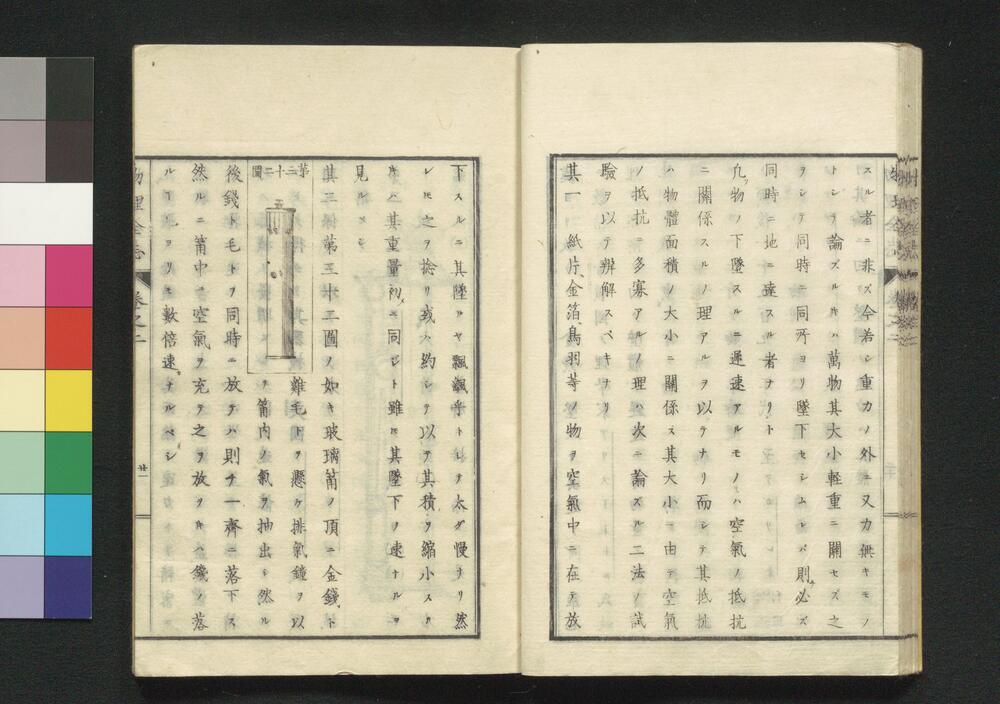 スル者ニ非ズ今若シ重力ノ外ニ又力無キモノ
トシテ論ズルキハ萬物其大小軽重ニ關セズ之
ヲシテ同時ニ同所ヨリ墜下セシムレバ則必ズ
同時ニ地ニ達スル者ナリト
凢物ノ下墜スルニ遲速アルモノハ空氣ノ抵抗
ニ關係スルノ理アルヲ以テナリ而シテ其抵抗
ハ物體面積ノ大小ニ關係ス其大小ニ由テ空氣
ノ抵抗ニ多寡アルノ理ハ次ニ論ズル二法ノ試
驗ヲ以テ辨解スベキナリ
其一 紙片、金箔、鳥羽等ノ物ヲ空氣中ニ在テ放
下スルニ其墜ルヤ飄飄乎トシテ太ダ慢ナリ然
レモ之ヲ捻リ或ハ約シテ以テ其積ヲ縮小スル
キハ其重量初ニ同ジト雖モ其墜下ヲ速ナルヲ
見ルベシ
其二 第三十二圖ノ如キ玻璃筩ノ頂ニ金錢ト
第三十二圖
雞毛トヲ懸ケ排氣鐘ヲ以
テ筩内ノ氣ヲ抽出シ然ル
後錢ト毛トヲ同時ニ放テハ則チ一齊ニ落下ス
然ルニ筩中ニ空氣ヲ充テ之ヲ放ツキハ錢ノ落
ルヿ毛ヨリモ數倍速ナルベシ
物理全志 巻之二 廿一